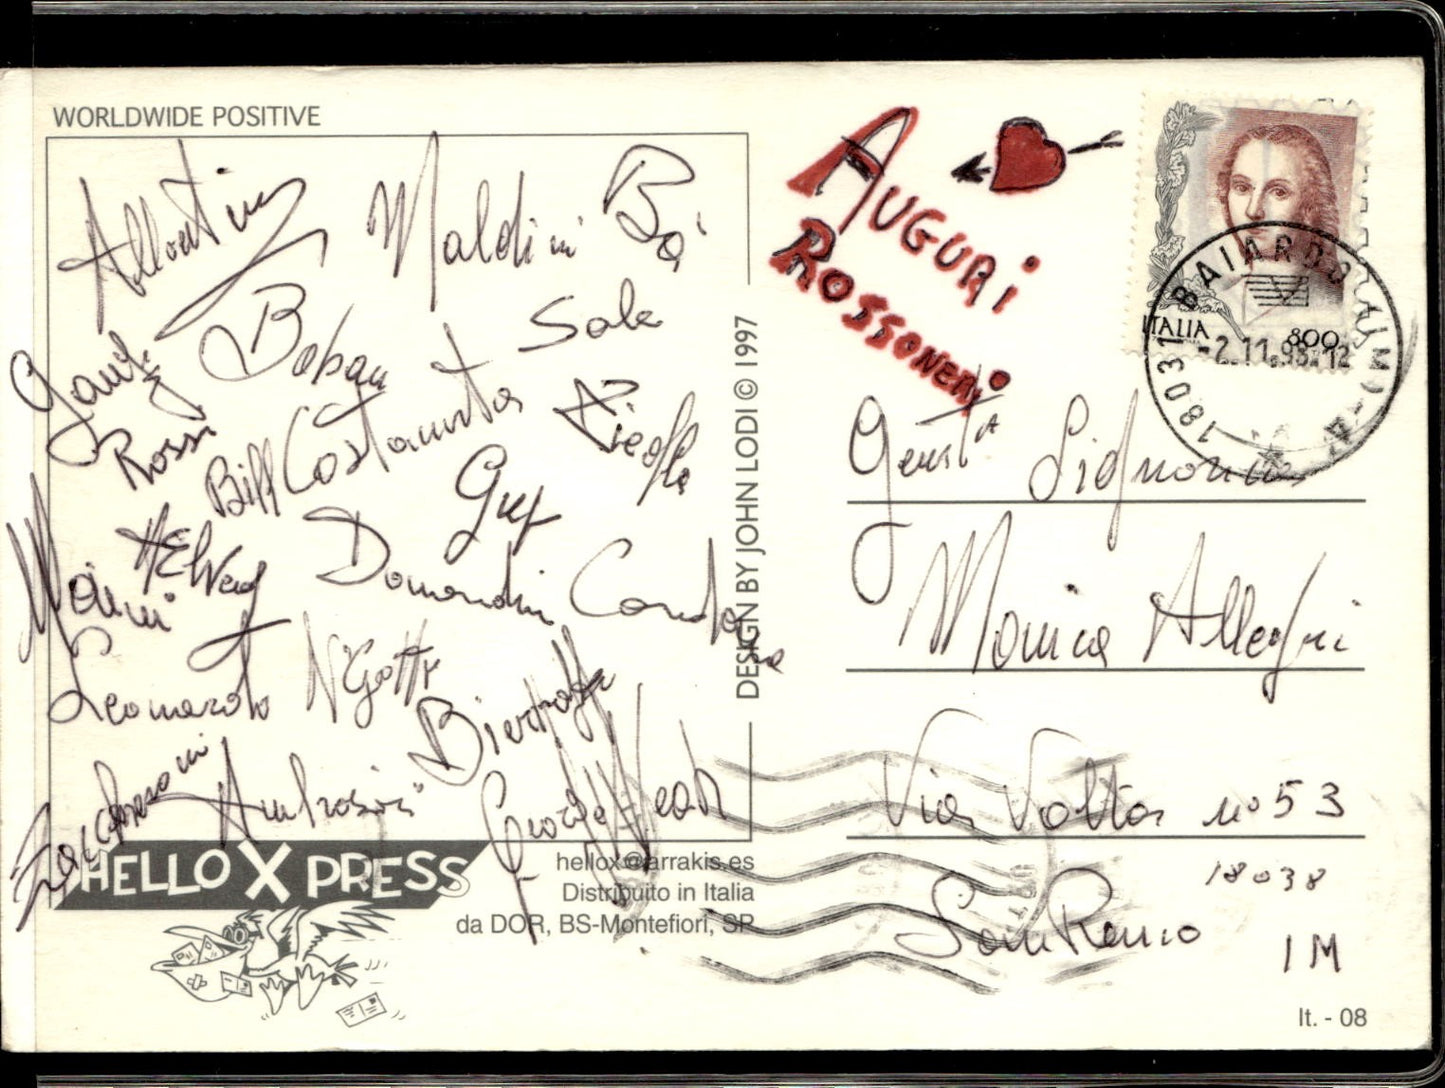 WORLDWIDE POSITIVE
Albertini Maldini Ba
Ganz Boban Sala
Rossi Billy Costacurta Ziege
Guly
Maini Helveg Donandoni Cardone
Leonardo N'Gotty
Bierhoff
Zaccheroni Ambrosini George Weah
DESIGN BY JOHN LODI © 1997
HELLO X PRESS
hellox@arrakis.es
Distribuito in Italia
da DOR, BS-Montefiori, SP
AUGURI
ROSSONERI
ITALIA 800
18031 BAIARDO (IM) - A
-2.11.98.12
Gent.a Signorina
Monica Allegri
Via Volta n° 53
18038
San Remo
IM
It. - 08